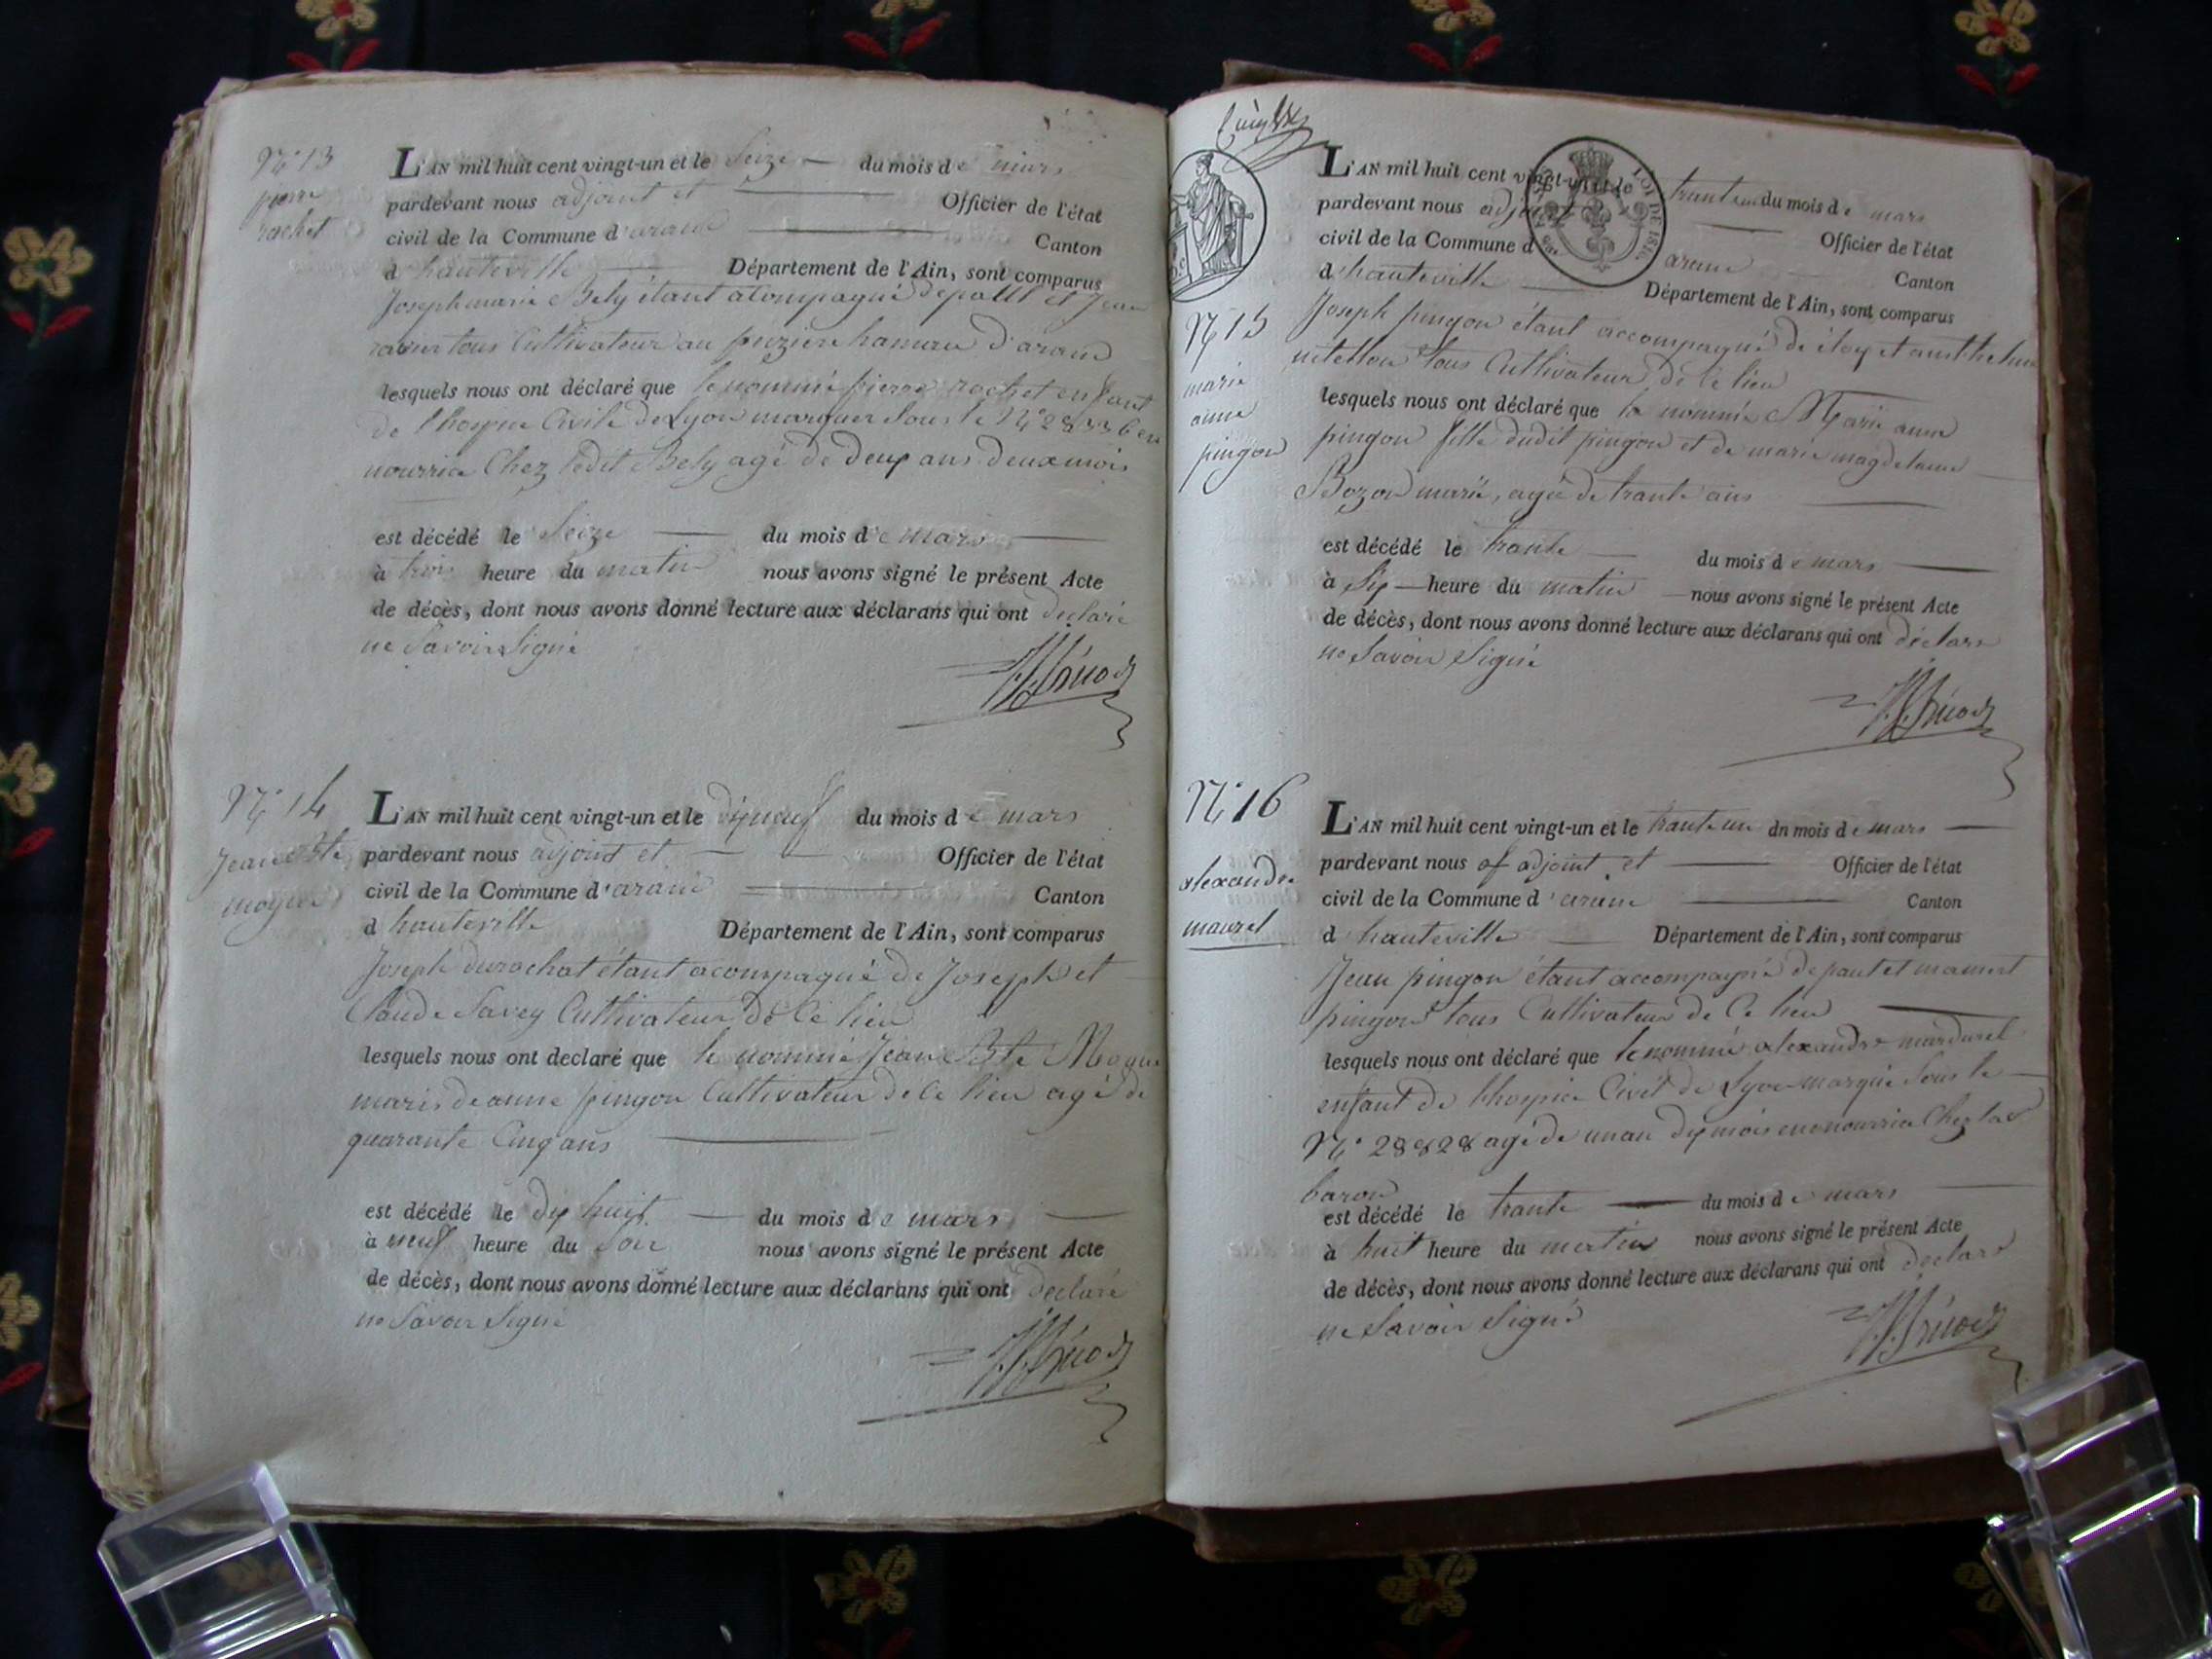 N° 13
pierre
rochet
L'AN mil huit cent vingt-un et le Seize du mois de mars
pardevant nous adjoint et Officier de l'état
civil de la Commune d'aranc Canton
d hauteville Département de l'Ain, sont comparus
Joseph marie Bely étant acompagné de paul et Jean
tous Cultivateur au hameau d'aranc
lesquels nous ont déclaré que le nommé pierre rochet enfant
de lhospice Civile de Lyon marquer Sous le N° en
nourrice Chez ledit Bely agé de deux ans deux mois
est décédé le Seize du mois de mars
à trois heure du matin nous avons signé le présent Acte
de décès, dont nous avons donné lecture aux déclarans qui ont déclaré
ne Savoir Signé
N° 14
Jean Bte
moyne
L'AN mil huit cent vingt-un et le dixneuf du mois de mars
pardevant nous adjoint et Officier de l'état
civil de la Commune d'aranc Canton
d hauteville Département de l'Ain, sont comparus
Joseph durochat étant acompagné de Joseph et
Claude Savey Cultivateur de Ce lieu
lesquels nous ont declaré que le nommé Jean Bte Moyne
maris de anne pingon Cultivateur de Ce lieu agé de
quarante Cinq ans
est décédé le dix huit du mois de mars
à neuf heure du Soir nous avons signé le présent Acte
de décès, dont nous avons donné lecture aux déclarans qui ont declaré
ne Savoir Signé
L'AN mil huit cent vingt-un et le trante un du mois de mars
pardevant nous adjoint Officier de l'état
civil de la Commune d aranc Canton
d hauteville Département de l'Ain, sont comparus
LOI DE 1816
N° 15
marie
anne
pingon
Joseph pingon étant accompagné de éloy et
tous Cultivateur de Ce lieu
lesquels nous ont déclaré que la nommée Marie anne
pingon fille dudit pingon et de marie magdelaine
Bozon marié, agée de trante ans
est décédé le trante du mois de mars
à Six heure du matin nous avons signé le présent Acte
de décès, dont nous avons donné lecture aux déclarans qui ont déclaré
ne Savoir Signé
N° 16
alexandre
maurel
L'AN mil huit cent vingt-un et le trante un dn mois de mars
pardevant nous adjoint et Officier de l'état
civil de la Commune d'aranc Canton
d hauteville Département de l'Ain, sont comparus
Jean pingon étant accompagné de paul et mamert
pingon tous Cultivateur de Ce lieu
lesquels nous ont déclaré que le nommé alexandre
enfant de lhospice Civil de Lyon marqué Sous le
N° 28828 agé de un an dix mois en nourrice Chez
baron
est décédé le trante du mois de mars
à huit heure du matin nous avons signé le présent Acte
de décès, dont nous avons donné lecture aux déclarans qui ont declaré
ne Savoir Signé